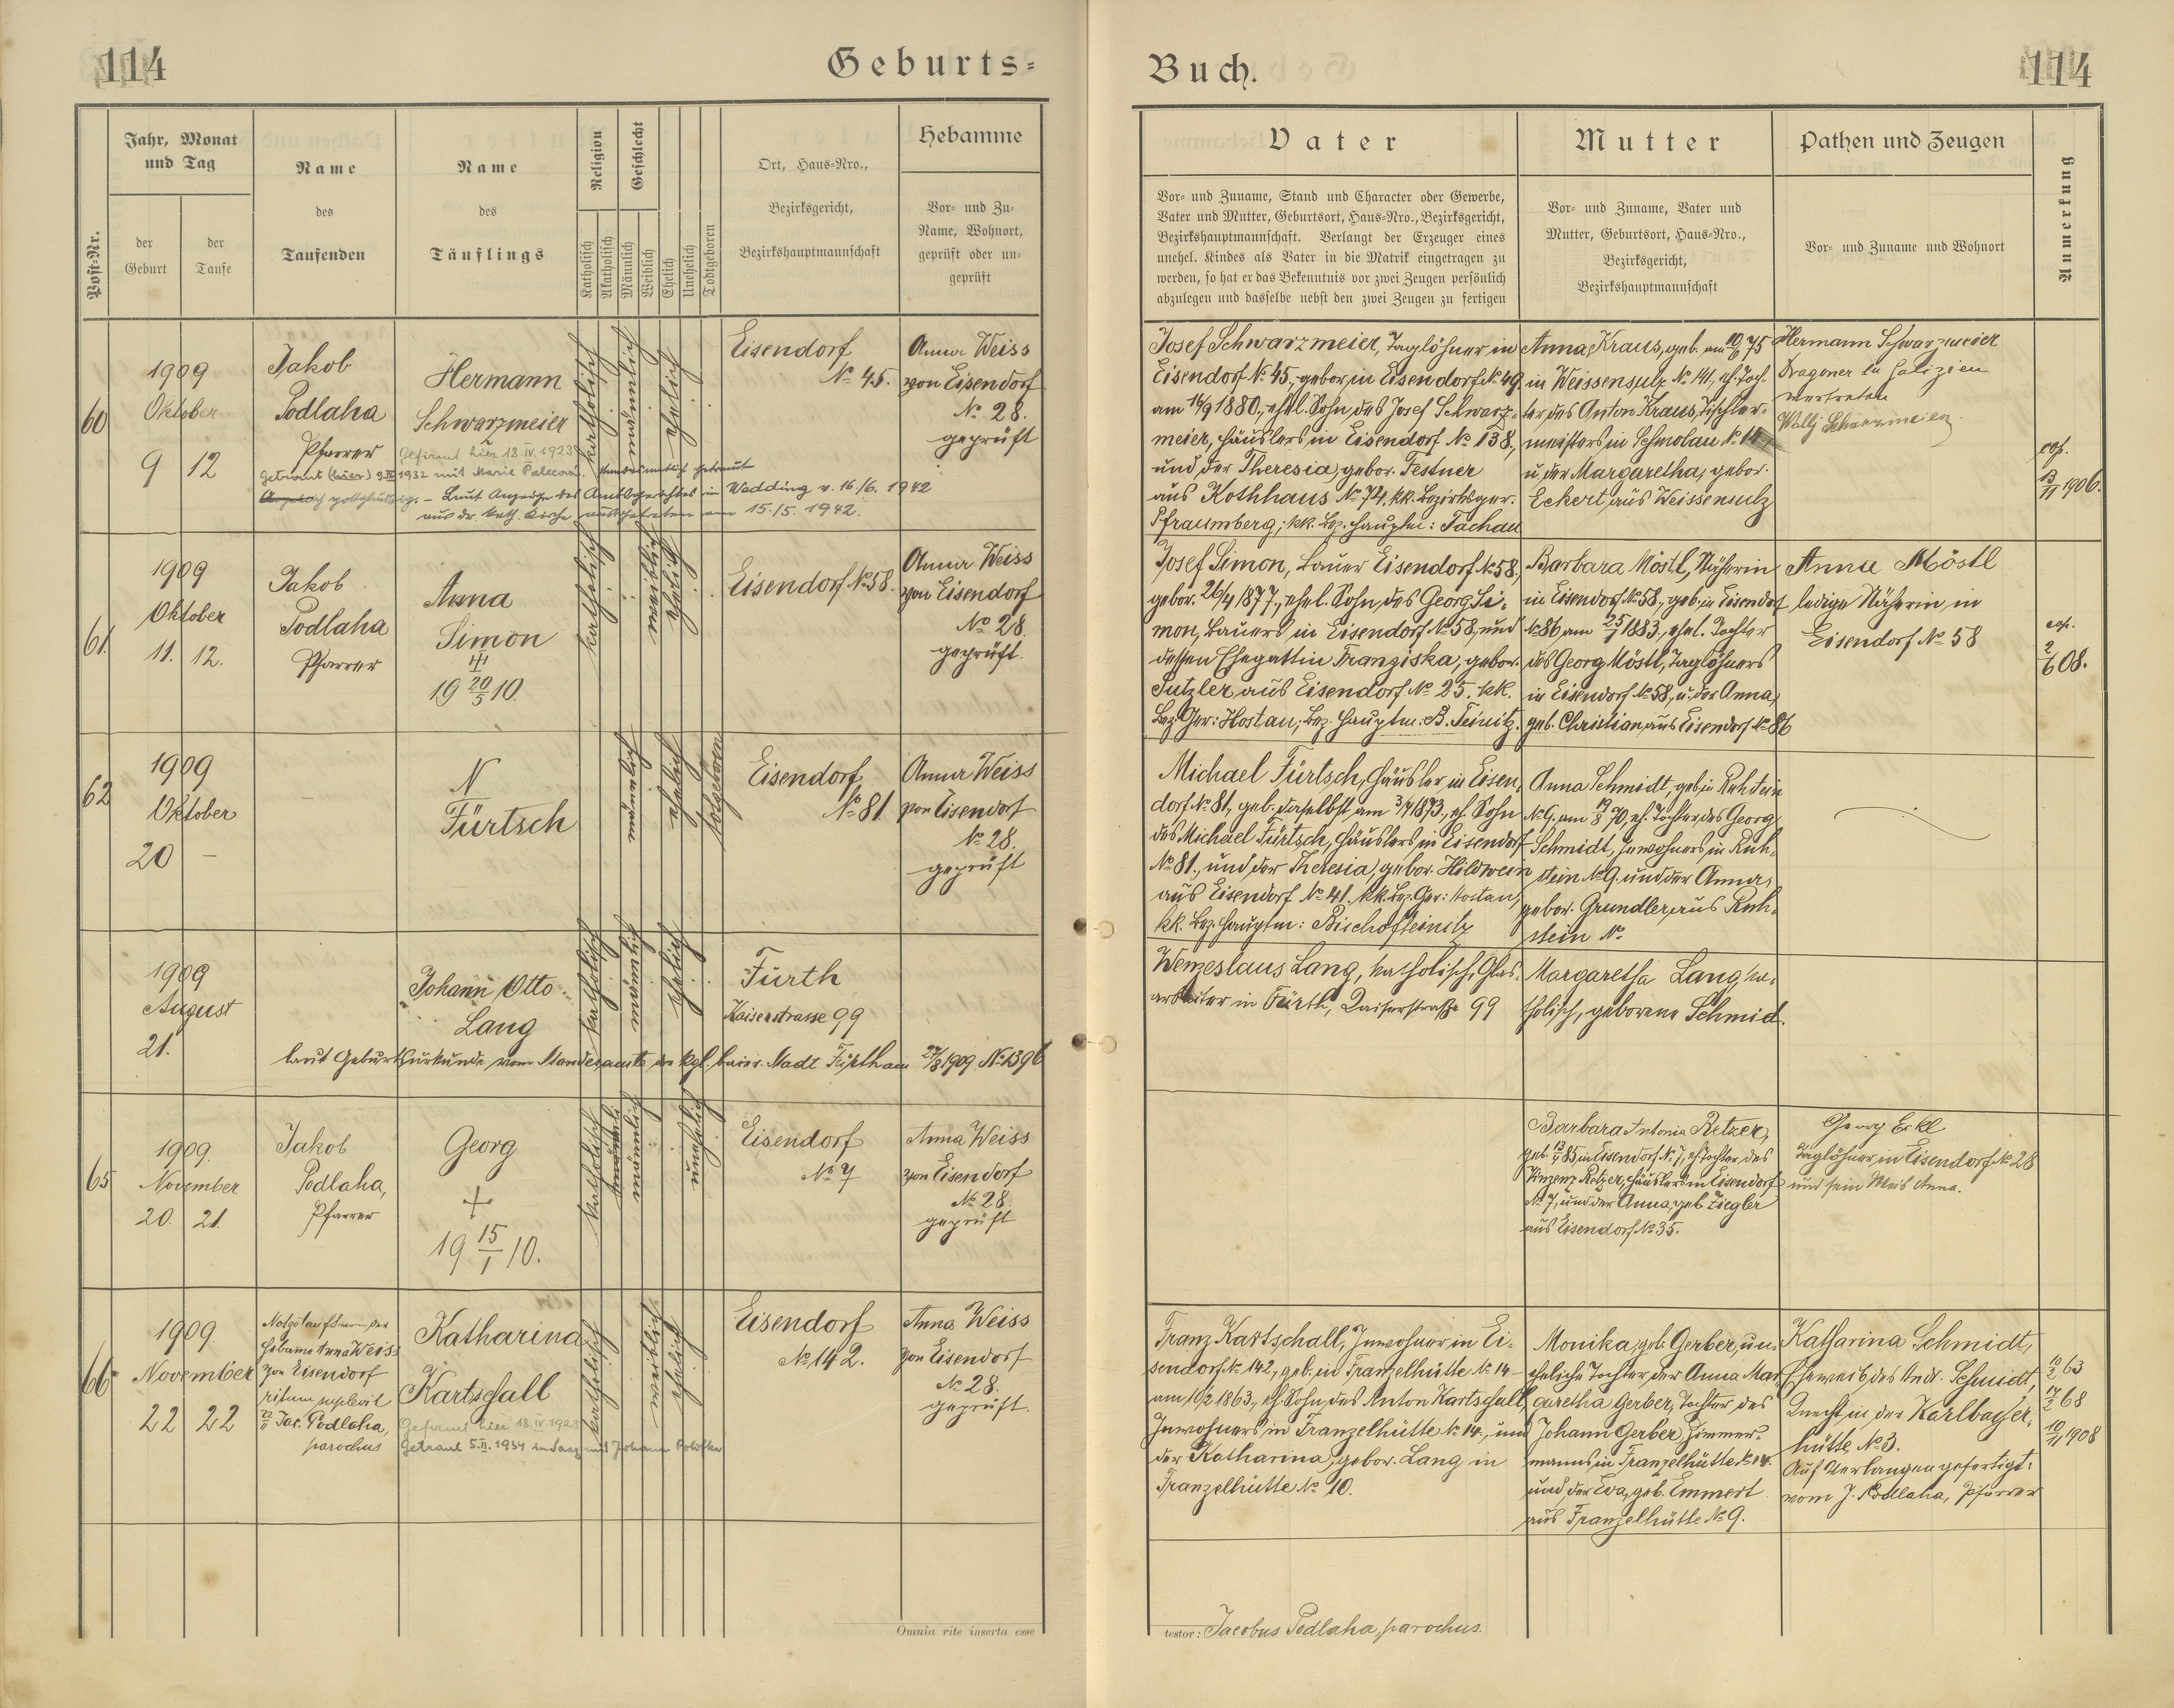 114
Geburts-
Jahr, Monat
und Tag
Name
Name
Religion
Geschlecht
Ort, Haus-Nro.,
Hebamme
Post-Nr.
der
Geburt
der
Taufe
des
Taufenden
des
Täuflings
Katholisch
Akatholisch
Männlich
Weiblich
Ehelich
Unehelich
Todtgeboren
Bezirksgericht,
Bezirkshauptmannschaft
Vor- und Zu-
Name, Wohnort,
geprüft oder un-
geprüft
60
1909
Oktober
9 12
Jakob
Podlaha
Pfarrer
Hermann
Schwarzmeier
Gefirmt hier 18.IV.1923
katholisch
männlich
ehelich
Eisendorf
No 45.
Anna Weiss
von Eisendorf
No 28.
geprüft
1932 mit Marie
standesamtlich getraut
gottgläubig. – Laut Anzeige des Amtsgerichtes in Wedding v. 16./6. 1942
aus der kath. Kirche ausgetreten am 15./5. 1942.
61
1909
Oktober
11. 12.
Jakob
Podlaha
Pfarrer
Anna
Simon
19 20/5 10.
katholisch
weiblich
ehelich
Eisendorf No 58.
Anna Weiss
von Eisendorf
No 28
geprüft.
62
1909
Oktober
20 –
–
N
Fürtsch
männlich
ehelich
totgeboren
Eisendorf
No 81
Anna Weiss
von Eisendorf
No 28.
geprüft
1909
August
21.
Johann Otto
Lang
katholisch
männlich
ehelich
Fürth
Kaiserstrasse 99
laut Geburtsurkunde vom Standesamte der kgl. baier. Stadt Fürth am 24/8 1909 No 1396
65
1909.
November
20. 21.
Jakob
Podlaha,
Pfarrer
Georg
+
19 15/1 10.
katholisch
männlich
unehelich
Eisendorf
No 7
Anna Weiss
von Eisendorf
No 28.
geprüft
66
1909.
November
22 22
Notgetauft von der
Hebamme Anna Weiss
von Eisendorf
ritum suplevit
22/11 Jac. Podlaha,
parochus
Katharina
Kartschall
Gefirmt hier 18.IV.1923
Getraut 5.II.1934 in Saaz mit Johann
katholisch
weiblich
ehelich
Eisendorf
No 142.
Anna Weiss
von Eisendorf
No 28.
geprüft.
Omnia rite inserta esse
Buch.
114
Vater
Mutter
Pathen und Zeugen
Anmerkung
Vor- und Zuname, Stand und Character oder Gewerbe,
Vater und Mutter, Geburtsort, Haus-Nro., Bezirksgericht,
Bezirkshauptmannschaft. Verlangt der Erzeuger eines
unehel. Kindes als Vater in die Matrik eingetragen zu
werden, so hat er das Bekenntnis vor zwei Zeugen persönlich
abzulegen und dasselbe nebst den zwei Zeugen zu fertigen
Vor- und Zuname, Vater und
Mutter, Geburtsort, Haus-Nro.,
Bezirksgericht,
Bezirkshauptmannschaft
Vor- und Zuname und Wohnort
Josef Schwarzmeier, Taglöhner in
Eisendorf No 45, gebor. in Eisendorf No 49
am 16/9 1880., ehel. Sohn des Josef Schwarz-
meier, Häuslers in Eisendorf No 138,
und der Theresia, gebor. Festner
aus Kothhaus No 74, kk. Bezirksger.
Pfraumberg, kk. Bez. Hauptm: Tachau
Anna Kraus, geb. am 10/6 75
in Weissensulz No 141, eh. Toch-
ter des Anton Kraus, Tischler-
meisters in Schmolau No
u. der Margaretha, gebor.
Eckert aus Weissensulz
Hermann Schwarzmeier
Dragoner in Galizien
vertreten
Wally Schwarzmeier
cop.
13/11 1906.
Josef Simon, Bauer Eisendorf No 58,
gebor. 26/4 1877., ehel. Sohn des Georg Si-
mon, Bauers in Eisendorf No 58, und
dessen Ehegattin Franziska, gebor.
Putzler aus Eisendorf No 25. kk.
Bez. Ger: Hostau, Bez. Hauptm: B. Teinitz.
Barbara Möstl, Näherin
in Eisendorf No 58., geb. in Eisendorf
No 86 am 25/7 1883., ehel. Tochter
des Georg Möstl, Taglöhners
in Eisendorf No 58, u. der Anna,
geb. Christian aus Eisendorf No 86
Anna Möstl
ledige Näherin in
Eisendorf No 58
cop.
2/6 08.
Michael Fürtsch, Häusler in Eisen-
dorf No 81, geb. daselbst am 3/4 1873., eh. Sohn
des Michael Fürtsch, Häuslers in Eisendorf
No 81., und der Theresia, gebor. Hildwein
aus Eisendorf No 41. kk. Bez. Ger: Hostau,
kk. Bez. Hauptm: Bischofteinitz
Anna Schmidt, geb. in Ruhstein
No 9. am 19/8 70, eh. Tochter des Georg
Schmidt, Inwohners in Ruh-
stein No 9. und der Anna,
gebor. Grundler aus Ruh-
stein No
Wenzeslaus Lang, katholisch, Glas-
arbeiter in Fürth, Kaiserstraße 99
Margaretha Lang, ka-
tholisch, geborene Schmid.
Barbara Antonia Retzer,
geb. 13/1 85 in Eisendorf No 7, eh. Tochter des
Vinzenz Retzer, Häuslers in Eisendorf
No 7, und der Anna, geb. Ziegler
aus Eisendorf No 35.
Georg Erkl
Taglöhner in Eisendorf No 28
und sein Weib Anna.
Franz Kartschall, Inwohner in Ei-
sendorf No 142, geb. in Franzelhütte No 14
am 10/2 1863., eh. Sohn des Anton Kartschall,
Inwohners in Franzelhütte No 14., und
der Katharina, gebor. Lang in
Franzelhütte No 10.
Monika, geb. Gerber, un-
eheliche Tochter der Anna Mar-
garetha Gerber, Tochter des
Johann Gerber, Zimmer-
manns in Franzelhütte No 14.
und der Eva, geb. Emmert
aus Franzelhütte No 9.
Katharina Schmidt,
Eheweib des And. Schmidt,
Knecht in der Karlbacher-
hütte No 3.
Auf Verlangen gefertigt:
vom J. Podlaha, Pfarrer
10/2 63
17/2 68
10/11 1908
testor: Jacobus Podlaha, parochus.